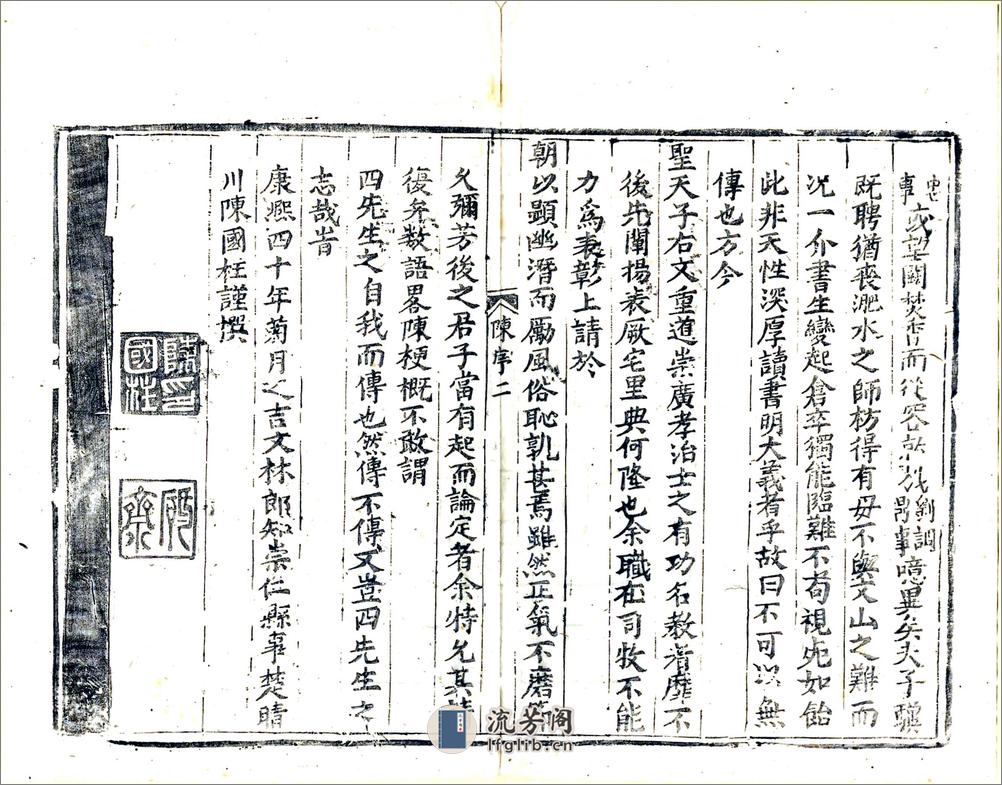 或望闕焚香而從容就殁劉調
鼎事噫異矣夫子驥
既聘猶喪淝水之師枋得有毋不與文山之難而
况一介書生變起倉卒獨能臨難不茍視死如飴
此非天性深厚讀書明大義者乎故曰不可以無
傳也方今
聖天子右文重道崇廣孝治士之有功名教者靡不
後先闡揚表厥宅里典何隆也余職在司牧不能
力為表彰上請於
朝以顯幽潛而勵風俗恥孰甚焉雖然正氣不磨
陳序二
久彌芳後之君子當有起而論定者余特允其
復弁數語畧陳梗概不敢謂
四先生之自我而傳也然傳不傳又豈四先生之
志哉旹
康熙四十年菊月之吉文林郎知崇仁縣事楚晴
川陳國柱謹撰
陳國柱印
齋
流芳阁
lfglib.cn